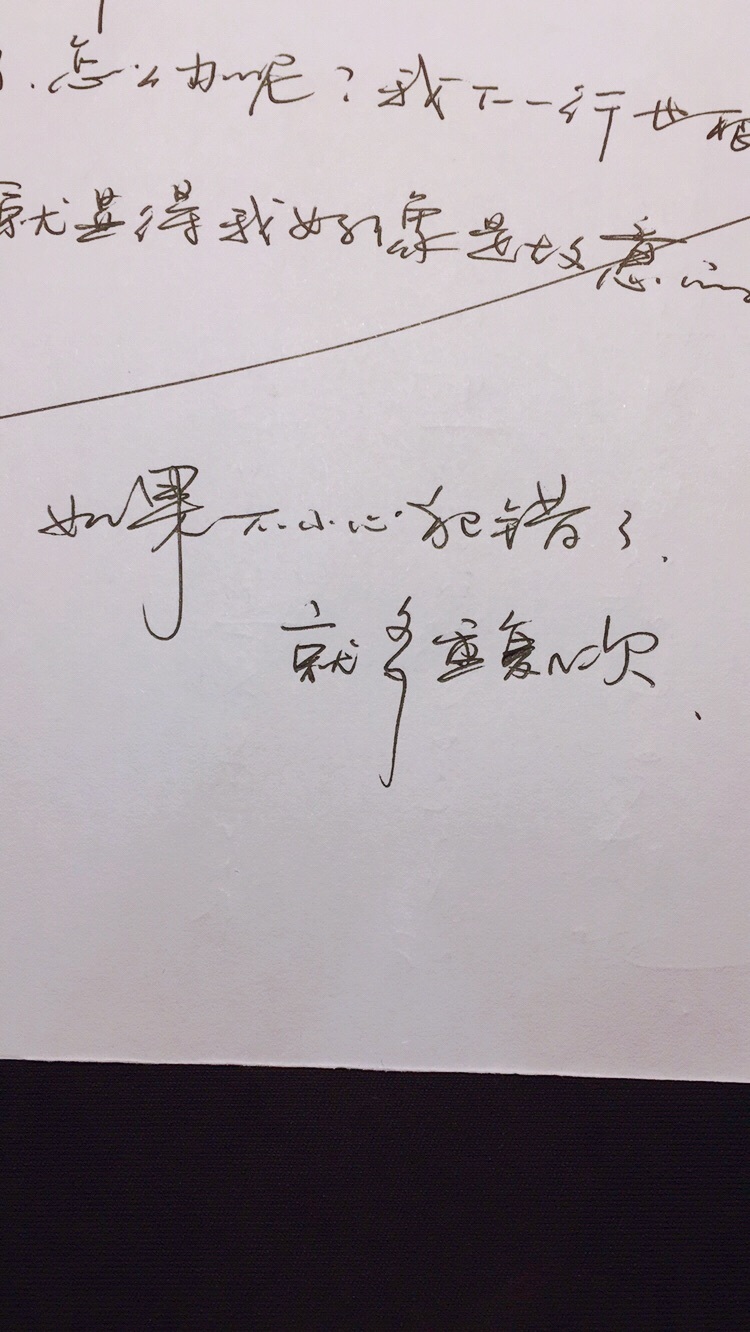 .怎么办呢?我下一行也
就显得我好像是故意
如果不小心犯错了.
就多重复几次.